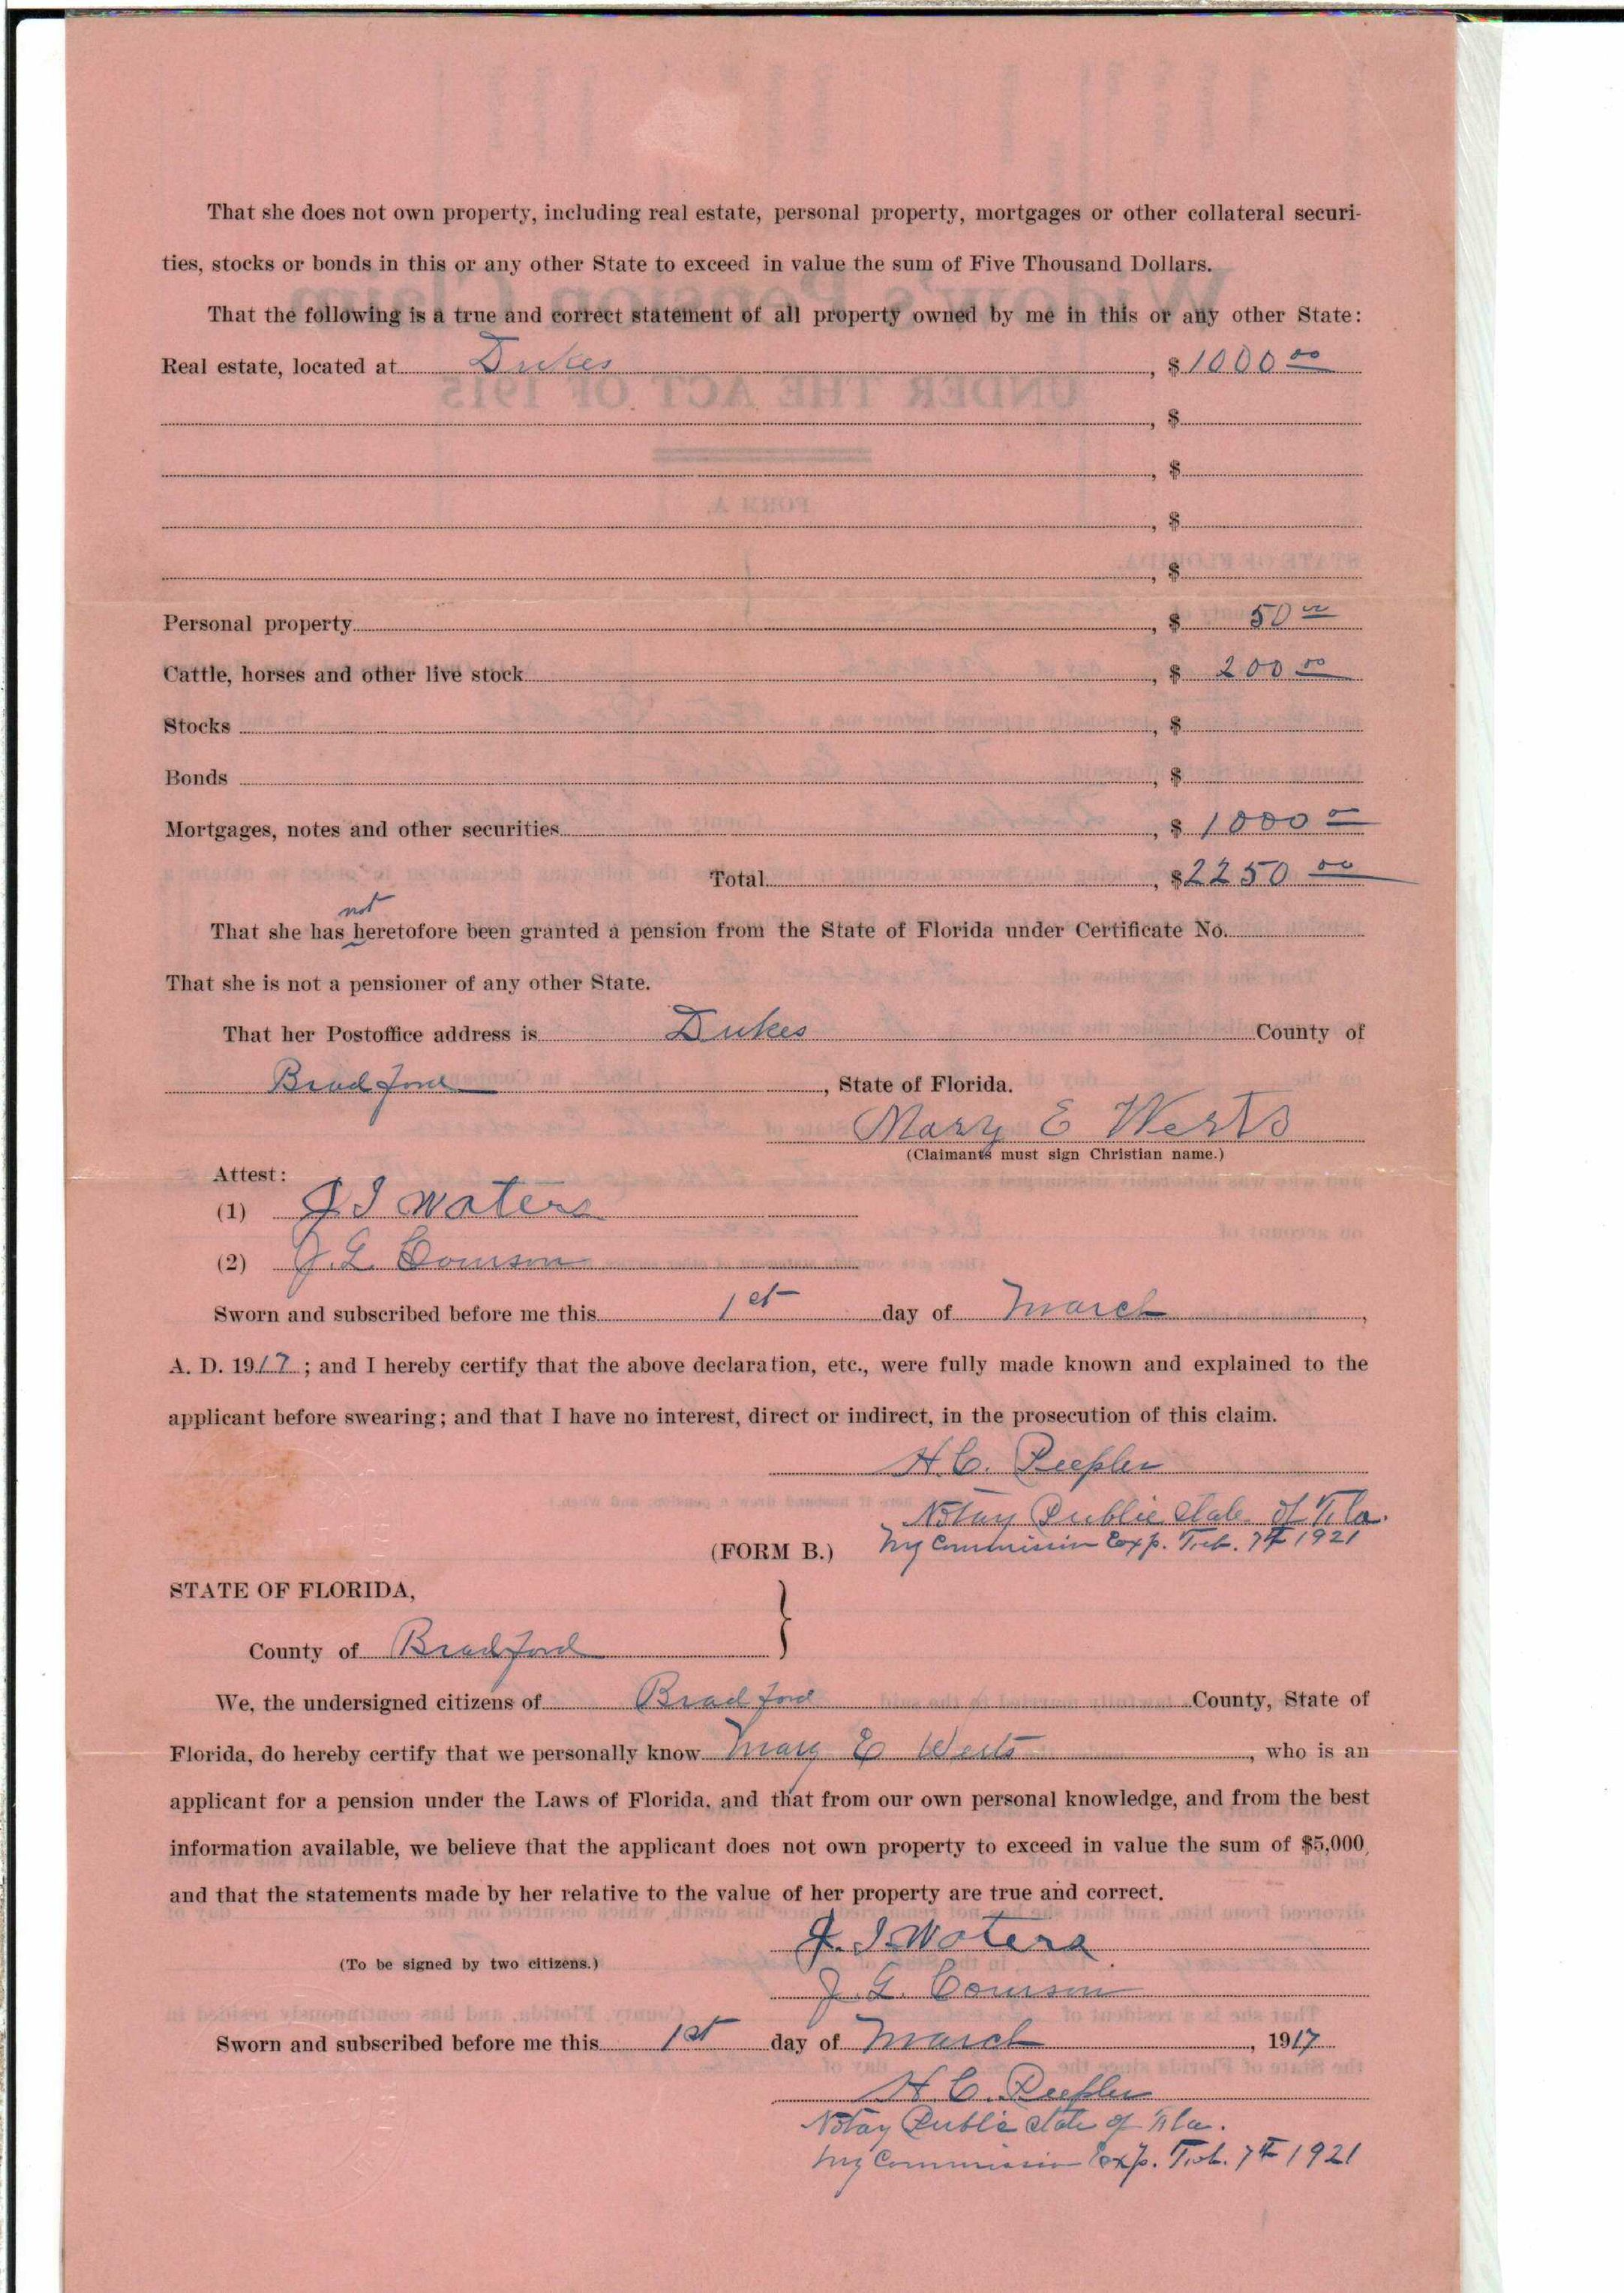 That she does not own property, including real estate, personal property, mortgages or other collateral securi-
ties, stocks or bonds in this or any other State to exceed in value the sum of Five Thousand Dollars.
That the following is a true and correct statement of all property owned by me in this or any other State:
Real estate, located at Dukes, $ 1000 00
, $
, $
, $
, $
Personal property, $ 50 00
Cattle, horses and other live stock, $ 200 00
Stocks, $
Bonds, $
Mortgages, notes and other securities, $ 1000 00
Total, $ 2250 00
not
That she has heretofore been granted a pension from the State of Florida under Certificate No.
That she is not a pensioner of any other State.
That her Postoffice address is Dukes County of
Bradford, State of Florida.
Mary E Werts
(Claimants must sign Christian name.)
Attest:
(1) J I Waters
(2) J. L. Courson
Sworn and subscribed before me this 1st day of March,
A. D. 1917; and I hereby certify that the above declaration, etc., were fully made known and explained to the
applicant before swearing; and that I have no interest, direct or indirect, in the prosecution of this claim.
H. C.
Notary Public State of Fla.
(FORM B.) My Commission Exp. Feb. 7th 1921
STATE OF FLORIDA,
County of Bradford }
We, the undersigned citizens of Bradford County, State of
Florida, do hereby certify that we personally know Mary E Werts, who is an
applicant for a pension under the Laws of Florida, and that from our own personal knowledge, and from the best
information available, we believe that the applicant does not own property to exceed in value the sum of $5,000,
and that the statements made by her relative to the value of her property are true and correct.
J. I. Waters
(To be signed by two citizens.)
J. L. Courson
Sworn and subscribed before me this 1st day of March, 1917
H. C.
Notary Public State of Fla.
My Commission Exp. Feb. 7th 1921